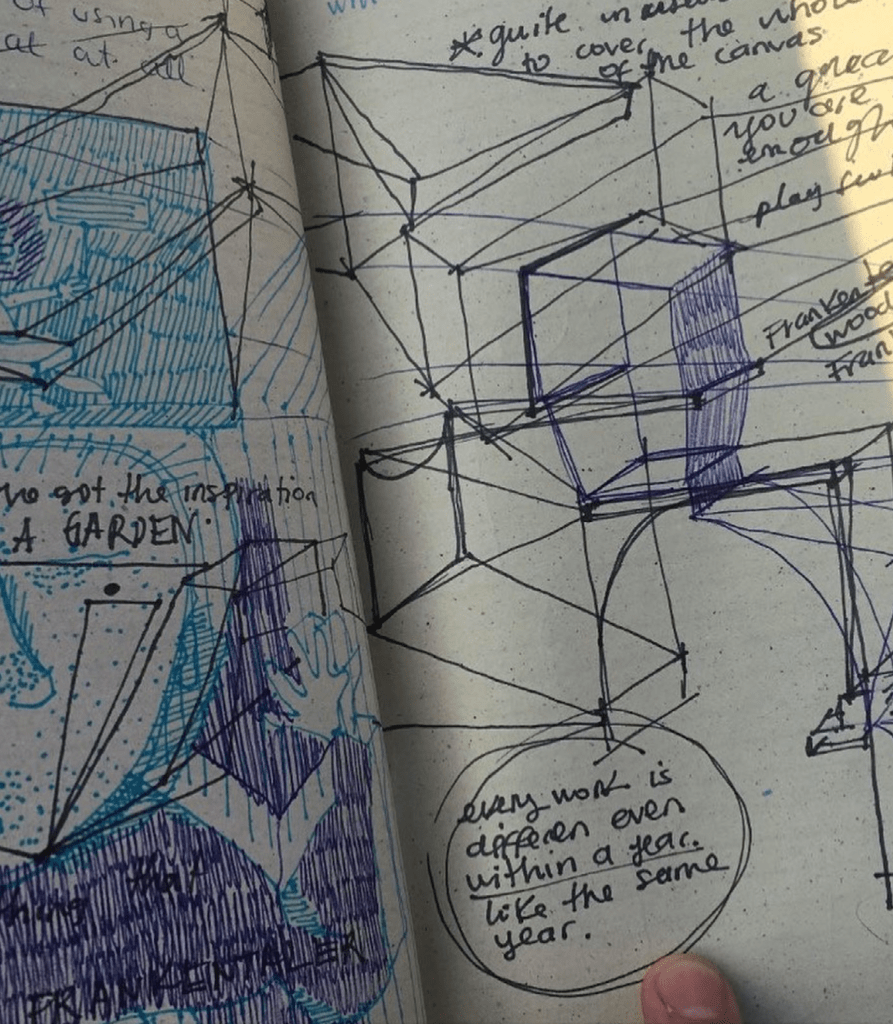 of using a
at at all
who got the inspiration
A GARDEN.
thing that
FRANKENTALER
* quite
to cover the whole
of the canvas
a
you are
enough
play
Frankenta
wood
Fran
every work is
differen even
within a year.
like the same
year.